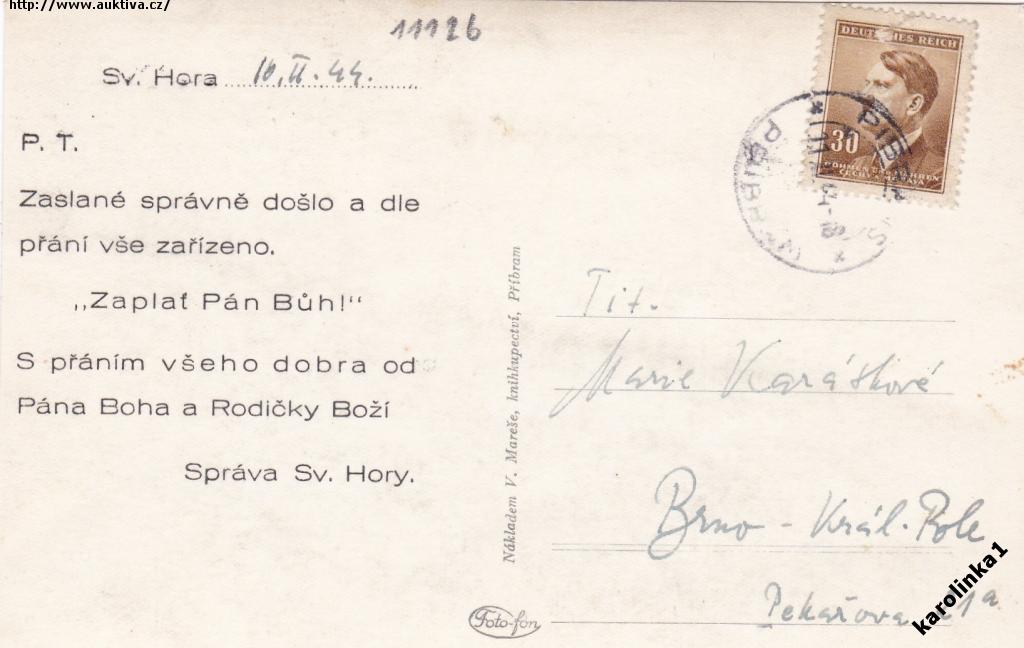 http://www.auktiva.cz/
11126
Sv. Hora 10.II.44.
P. T.
Zaslané správně došlo a dle
přání vše zařízeno.
„Zaplať Pán Bůh!“
S přáním všeho dobra od
Pána Boha a Rodičky Boží
Správa Sv. Hory.
Nákladem V. Mareše, knihkupectví, Příbram
Foto-fon
DEUTSCHES REICH
30
BÖHMEN UND MÄHREN
ČECHY A MORAVA
Tit.
Marie Karáskové
Brno - Král. Pole
Pekařova 1a
karolinka1